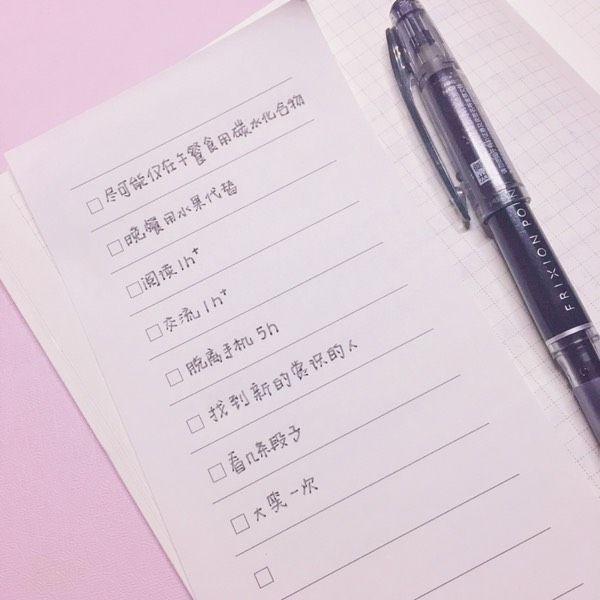 尽可能仅在午餐食用碳水化合物
晚餐用水果代替
阅读1h+
交流1h+
脱离手机5h
找到新的赏识的人
看几条段子
大笑一次
FRIXION POINT